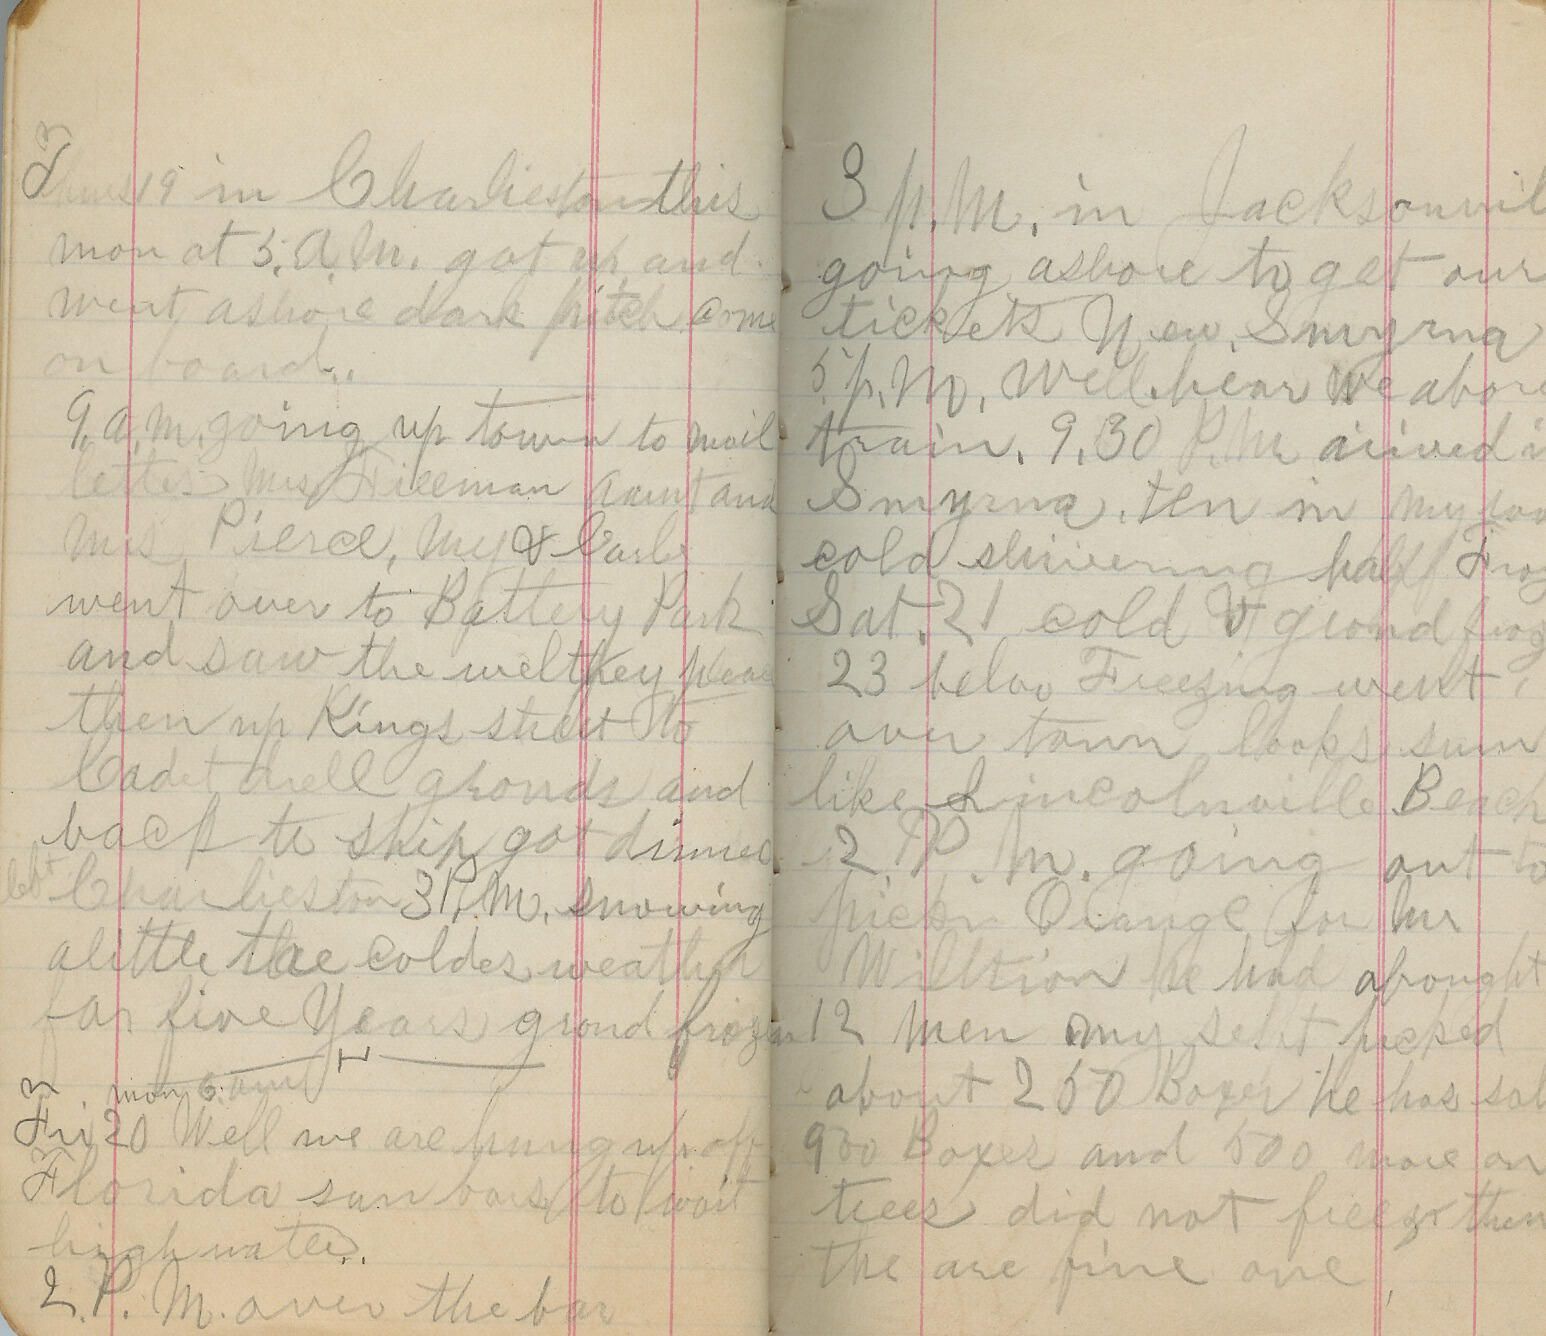 Thurs 19 in Charlieston this
morn at 5. A.M. got up and
went ashore dark pitch come
on board..
9. A.M. going up town to mail
letter Mrs Freeman aunt and
Mrs Pierce, My & Carl
went over to Battery Park
and saw the welthey
then up Kings street to
Cadet drell gronds and
back to ship got dinner
left Charlieston 3 P.M. snowing
a little the coldes weather
for five Years grond frozen
morn 6. am
Fri 20 Well we are hung up off
Florida san bars to wait
high water..
2. P. M. over the bar
3 p.M. in Jacksonvil
going ashore to get our
tickets New. Smyrna
5 p.M. Well hear we abore
train. 9.30 P.M arived i
Smyrna. ten in my roo
cold shivering half Froz
Sat. 21 cold & grond froz
23 below Freezing went
over town looks sum
like Lincolnville Beach
2. P. M. going out to
pick Orange for Mr
he had abought
12 men my self picked
about 250 Boxes he has sol
900 Boxes and 500 more on
trees did not freeze them
the are fine one,